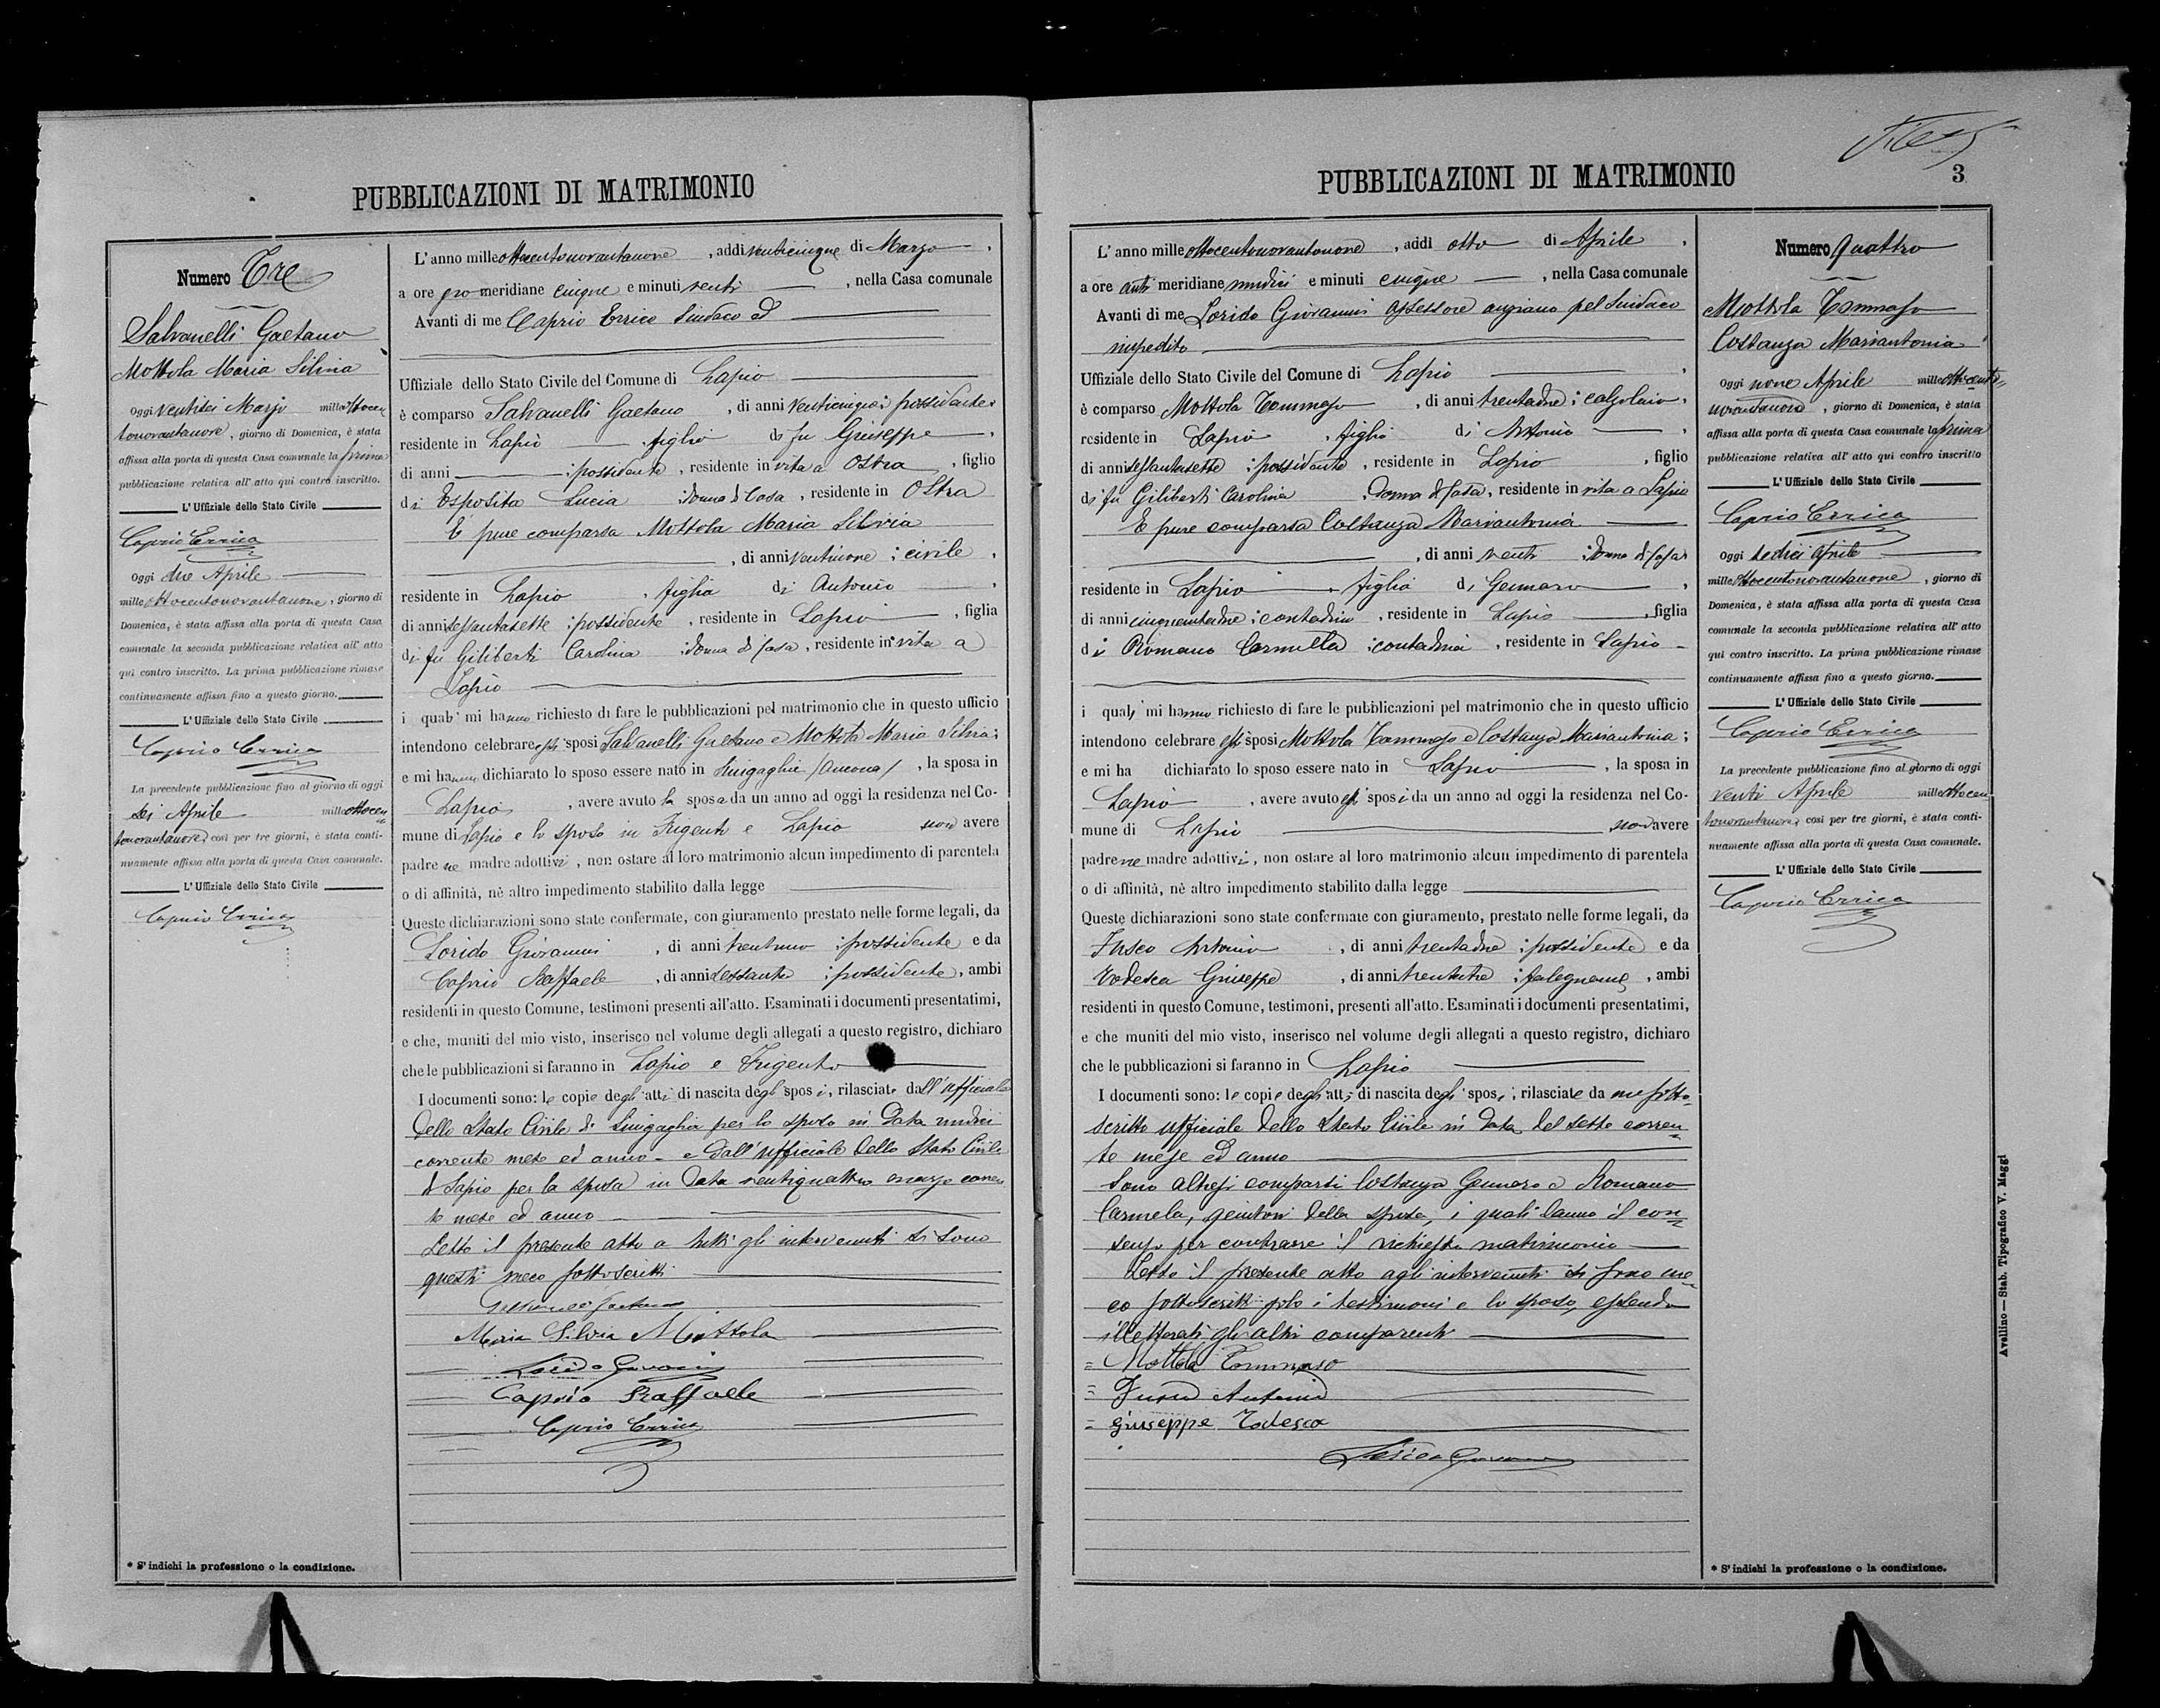 PUBBLICAZIONI DI MATRIMONIO
Numero Tre
Salvanelli Gaetano
Mottola Maria Silvia
Oggi ventisei Marzo milleottocen
tonovantanove, giorno di Domenica, è stata
affissa alla porta di questa Casa comunale la prima
pubblicazione relativa all' atto qui contro inscritto.
L' Uffiziale dello Stato Civile
Caprio Errico
Oggi due Aprile
milleottocentonovantanove, giorno di
Domenica, è stata affissa alla porta di questa Casa
comunale la seconda pubblicazione relativa all' atto
qui contro inscritto. La prima pubblicazione rimase
continuamente affissa fino a questo giorno.
L' Uffiziale dello Stato Civile
Caprio Errico
La precedente pubblicazione fino al giorno di oggi
sei Aprile milleottocen
tonovantanove, così per tre giorni, è stata conti-
nuamente affissa alla porta di questa Casa comunale.
L' Uffiziale dello Stato Civile
Caprio Errico
* S' indichi la professione o la condizione.
L' anno milleottocentonovantanove, addì venticinque di Marzo,
a ore pomeridiane cinque e minuti venti, nella Casa comunale
Avanti di me Caprio Errico Sindaco ed
Uffiziale dello Stato Civile del Comune di Lapio
è comparso Salvanelli Gaetano, di anni; possidente,
residente in Lapio, figlio di fu Giuseppe,
di anni; possidente, residente in vita a Ostra, figlio
di Esposito Lucia; donna di Casa, residente in Ostra
È pure comparsa Mottola Maria Silvia
, di anni ventinove; civile,
residente in Lapio, figlia di Antonio,
di anni sessantasette; possidente, residente in Lapio, figlia
di fu Giliberti Carolina; donna di casa, residente in vita a
Lapio
i quali mi hanno richiesto di fare le pubblicazioni pel matrimonio che in questo ufficio
intendono celebrare essi sposi Salvanelli Gaetano e Mottola Maria Silvia;
e mi hanno dichiarato lo sposo essere nato in Sinigaglia (Ancona), la sposa in
Lapio, avere avuto la sposa da un anno ad oggi la residenza nel Co-
mune di Lapio e lo sposo in Frigento e Lapio non avere
padre ne madre adottivi, non ostare al loro matrimonio alcun impedimento di parentela
o di affinità, nè altro impedimento stabilito dalla legge
Queste dichiarazioni sono state confermate, con giuramento prestato nelle forme legali, da
Lorido Giovanni, di anni trentuno; possidente e da
Caprio Raffaele, di anni sessanta; possidente, ambi
residenti in questo Comune, testimoni presenti all'atto. Esaminati i documenti presentatimi,
e che, muniti del mio visto, inserisco nel volume degli allegati a questo registro, dichiaro
che le pubblicazioni si faranno in Lapio e Frigento
I documenti sono: le copie degli atti di nascita degli sposi, rilasciate dall'ufficiale
dello Stato Civile di Sinigaglia per lo sposo in data undici
corrente mese ed anno - e dall'ufficiale dello Stato Civile
di Lapio per la sposa in data ventiquattro marzo corren
te mese ed anno
Letto il presente atto a tutti gli intervenuti si sono
questi meco sottoscritti
Salvanelli Gaetano
Maria Silvia Mottola
Lorido Giovanni
Caprio Raffaele
Caprio Errico
PUBBLICAZIONI DI MATRIMONIO
3
L' anno milleottocentonovantanove, addì otto di Aprile,
a ore antimeridiane undici e minuti cinque, nella Casa comunale
Avanti di me Lorido Giovanni assessore anziano pel Sindaco
impedito
Uffiziale dello Stato Civile del Comune di Lapio,
è comparso Mottola Tommaso, di anni trentadue; calzolaio,
residente in Lapio, figlio di Antonio,
di anni sessantasette; possidente, residente in Lapio, figlio
di fu Giliberti Carolina, donna di casa, residente in vita a Lapio
È pure comparsa Costanza Mariantonia
, di anni venti; donna di casa,
residente in Lapio, figlia di Gennaro,
di anni cinquantadue; contadino, residente in Lapio, figlia
di Romano Carmella; contadina, residente in Lapio
i quali mi hanno richiesto di fare le pubblicazioni pel matrimonio che in questo ufficio
intendono celebrare essi sposi Mottola Tommaso e Costanza Mariantonia;
e mi ha dichiarato lo sposo essere nato in Lapio, la sposa in
Lapio, avere avuto essi sposi da un anno ad oggi la residenza nel Co-
mune di Lapio non avere
padre ne madre adottivi, non ostare al loro matrimonio alcun impedimento di parentela
o di affinità, nè altro impedimento stabilito dalla legge
Queste dichiarazioni sono state confermate con giuramento, prestato nelle forme legali, da
Fusco Antonio, di anni trentadue; possidente e da
Todesca Giuseppe, di anni trentatre; falegname, ambi
residenti in questo Comune, testimoni, presenti all'atto. Esaminati i documenti presentatimi,
e che muniti del mio visto, inserisco nel volume degli allegati a questo registro, dichiaro
che le pubblicazioni si faranno in Lapio
I documenti sono: le copie degli atti di nascita degli sposi, rilasciate da me sotto-
scritto ufficiale dello Stato Civile in data del sette corren
te mese ed anno
Sono altresì comparsi Costanza Gennaro e Romano
Carmela, genitori della sposa, i quali danno il con
senso per contrarre il richiesto matrimonio
Letto il presente atto agli intervenuti si sono me
co sottoscritti solo i testimoni e lo sposo, essendo
illetterati gli altri comparenti
= Mottola Tommaso
= Fusco Antonio
= Giuseppe Todesca
Lorido Giovanni
Numero Quattro
Mottola Tommaso
Costanza Mariantonia
Oggi nove Aprile milleottocento
novantanove, giorno di Domenica, è stata
affissa alla porta di questa Casa comunale la prima
pubblicazione relativa all' atto qui contro inscritto
L' Uffiziale dello Stato Civile
Caprio Errico
Oggi sedici Aprile
milleottocentonovantanove, giorno di
Domenica, è stata affissa alla porta di questa Casa
comunale la seconda pubblicazione relativa all' atto
qui contro inscritto. La prima pubblicazione rimase
continuamente affissa fino a questo giorno.
L' Uffiziale dello Stato Civile
Caprio Errico
La precedente pubblicazione fino al giorno di oggi
venti Aprile milleottocen
tonovantanove, così per tre giorni, è stata conti-
nuamente affissa alla porta di questa Casa comunale.
L' Uffiziale dello Stato Civile
Caprio Errico
* S' indichi la professione o la condizione.
Avellino — Stab. Tipografico V. Maggi